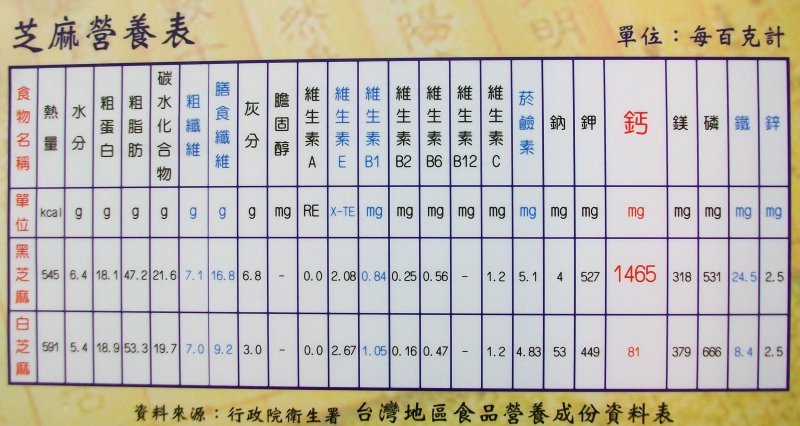 芝麻營養表
單位：每百克計
食物名稱 熱量 水分 粗蛋白 粗脂肪 碳水化合物 粗纖維 膳食纖維 灰分 膽固醇 維生素A 維生素E 維生素B1 維生素B2 維生素B6 維生素B12 維生素C 菸鹼素 鈉 鉀 鈣 鎂 磷 鐵 鋅
單位 kcal g g g g g g g mg RE X-TE mg mg mg mg mg mg mg mg mg mg mg mg mg
黑芝麻 545 6.4 18.1 47.2 21.6 7.1 16.8 6.8 - 0.0 2.08 0.84 0.25 0.56 - 1.2 5.1 4 527 1465 318 531 24.5 2.5
白芝麻 591 5.4 18.9 53.3 19.7 7.0 9.2 3.0 - 0.0 2.67 1.05 0.16 0.47 - 1.2 4.83 53 449 81 379 666 8.4 2.5
資料來源：行政院衛生署 台灣地區食品營養成份資料表